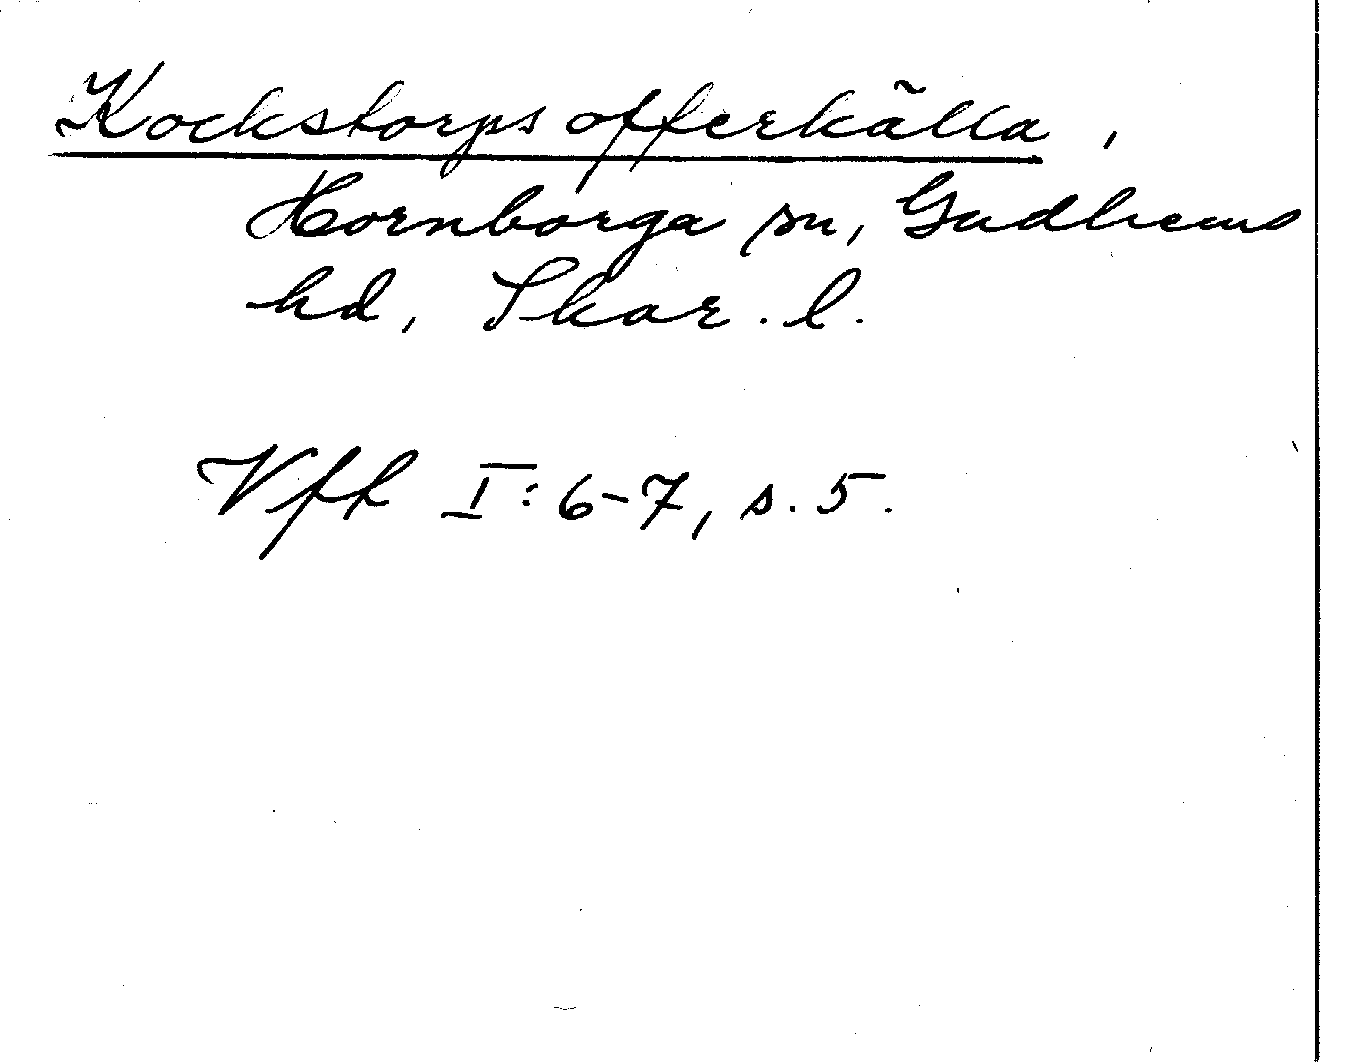 Kockstorps offerkälla,
Hornborga sn, Gudhems
hd, Skar. l.
Vff I: 6-7, s. 5.